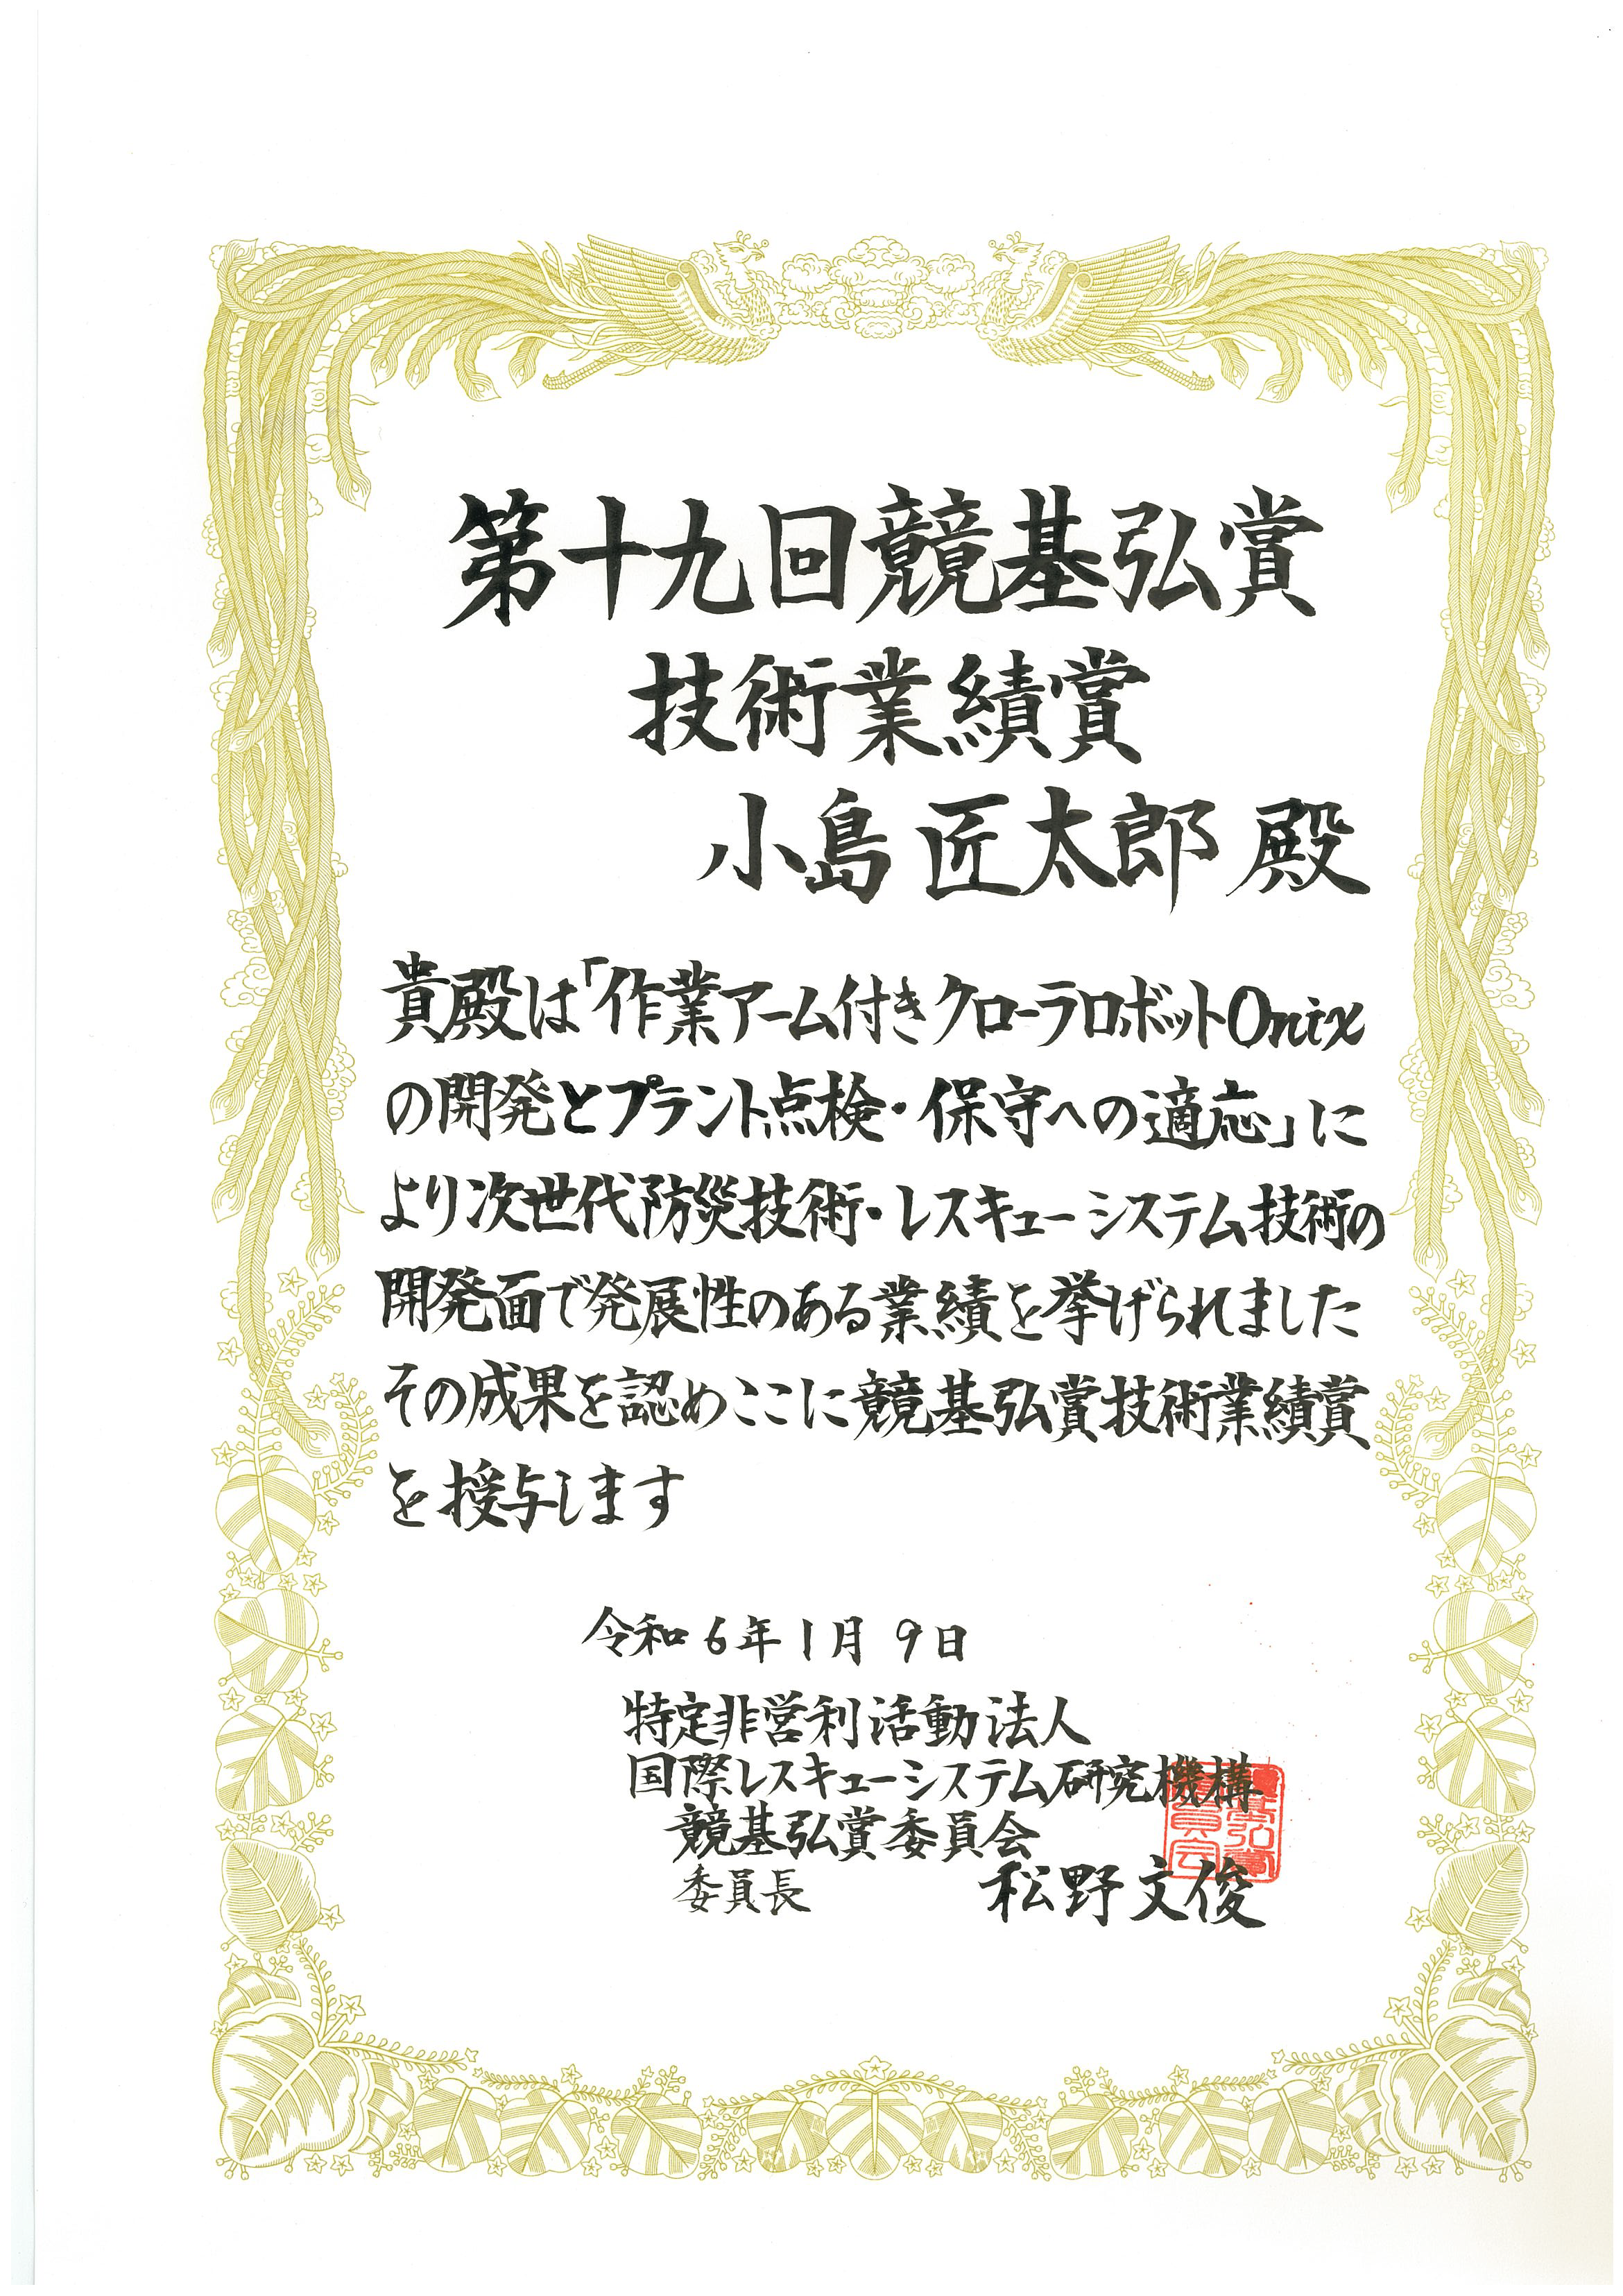 第十九回競基弘賞
技術業績賞
小島 匠太郎 殿
貴殿は「作業アーム付きクローラロボットOnix
の開発とプラント点検・保守への適応」に
より次世代防災技術・レスキューシステム技術の
開発面で発展性のある業績を挙げられました
その成果を認めここに競基弘賞技術業績賞
を授与します
令和6年1月9日
特定非営利活動法人
国際レスキューシステム研究機構
競基弘賞委員会
委員長 松野文俊